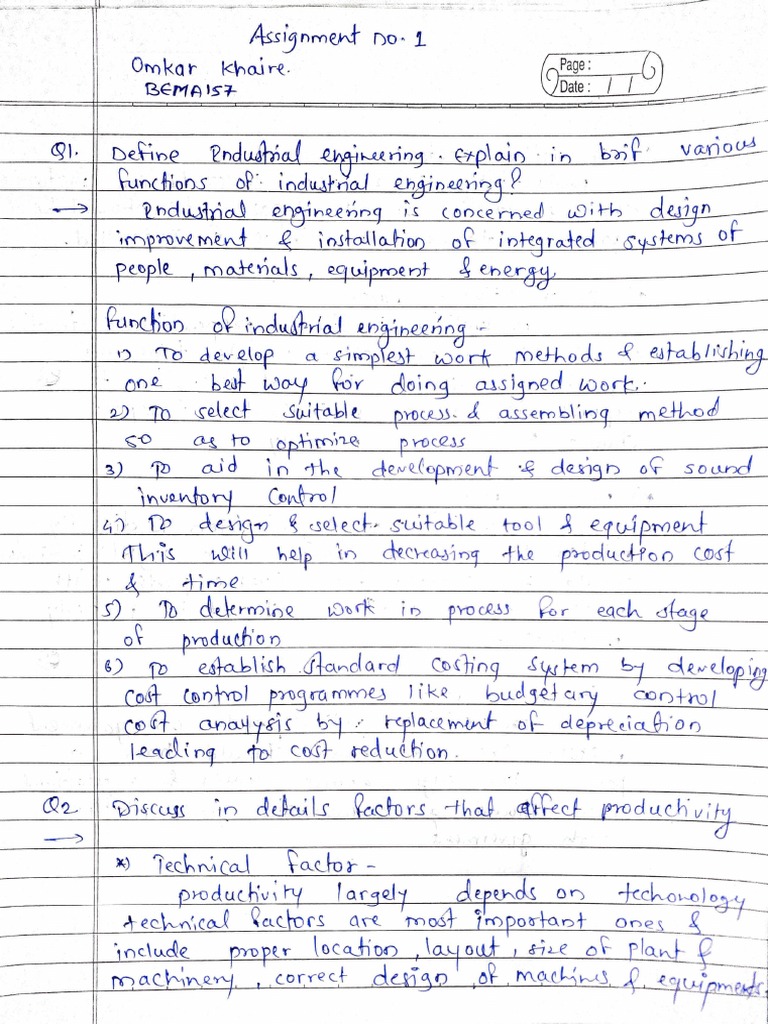 Assignment no. 1
Omkar Khaire.
BEMA157
Page :
Date : / /
Q1. Define Industrial engineering. Explain in brif various
functions of industrial engineering?
→ Industrial engineering is concerned with design
improvement & installation of integrated systems of
people, materials, equipment & energy
function of industrial engineering -
1) To develop a simplest work methods & establishing
one best way for doing assigned work.
2) To select suitable process & assembling method
so as to optimize process
3) To aid in the development & design of sound
inventory control
4) To design & select suitable tool & equipment
This will help in decreasing the production cost
& time
5) To determine work in process for each stage
of production
6) To establish standard costing system by developing
cost control programmes like budgetary control
cost analysis by replacement of depreciation
leading to cost reduction.
Q2 Discuss in details factors that affect productivity
→
*) Technical factor -
productivity largely depends on techonology
technical factors are most important ones &
include proper location, layout, size of plant &
machinery, correct design of machines & equipments